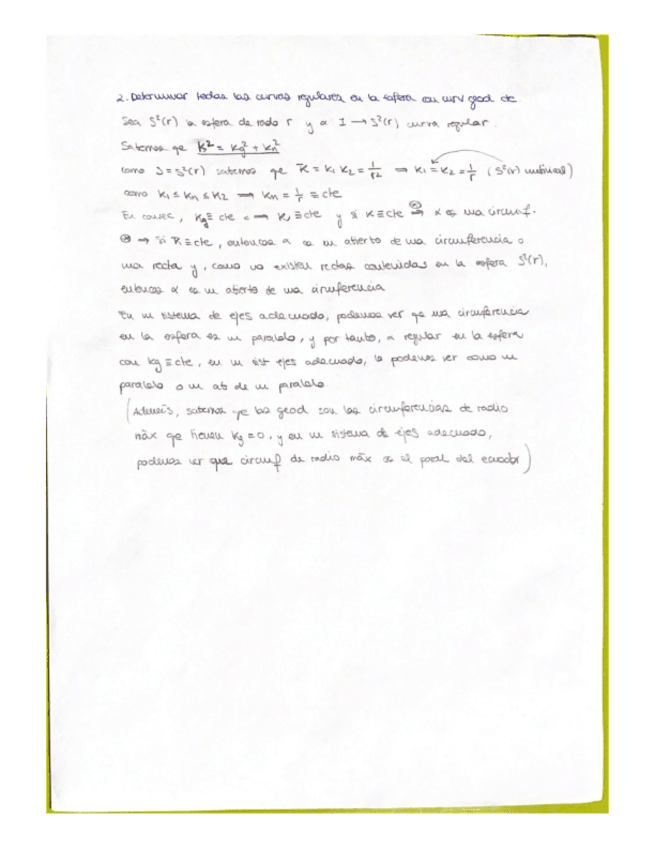 2. Determinar todas las curvas regulares en la esfera con curv geod cte
Sea S²(r) la esfera de radio r y α: I → S²(r) curva regular.
Sabemos qe K² = Kg² + Kn²
como S = S²(r) sabemos qe K = K₁ K₂ = 1/r² ⇒ K₁ = K₂ = 1/r (S²(r) umbilical)
como K₁ ≤ Kn ≤ K₂ ⇒ Kn = 1/r ≡ cte
En consec, Kg ≡ cte ⇐⇒ K ≡ cte y si K ≡ cte ⇒ α es una circunf.
⊛ → Si K ≡ cte, entonces α es un abierto de una circunferencia o
una recta y, como no existen rectas contenidas en la esfera S²(r),
entonces α es un abierto de una circunferencia
En un sistema de ejes adecuado, podemos ver qe una circunferencia
en la esfera es un paralelo, y por tanto, α regular en la esfera
con kg ≡ cte, en un sist ejes adecuado, la podemos ver como un
paralelo o un ab de un paralelo
(Además, sabemos qe las geod son las circunferencias de radio
máx qe tienen Kg = 0, y en un sistema de ejes adecuado,
podemos ver que circunf de radio máx es el paral del ecuador)